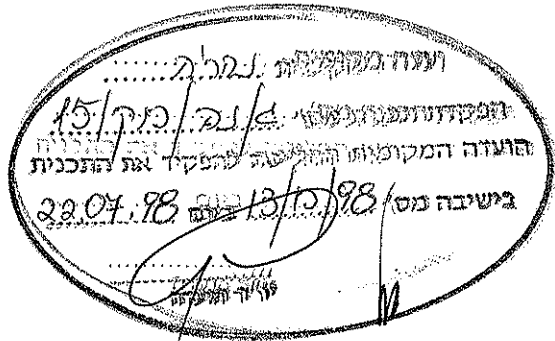 ועדה מקומית נהריה
הפקדת תכנית מס' ג/נה/מק/15
הועדה המקומית החליטה להפקיד את התכנית
בישיבה מס' 13/98 ביום 22.07.98
יו"ר הועדה